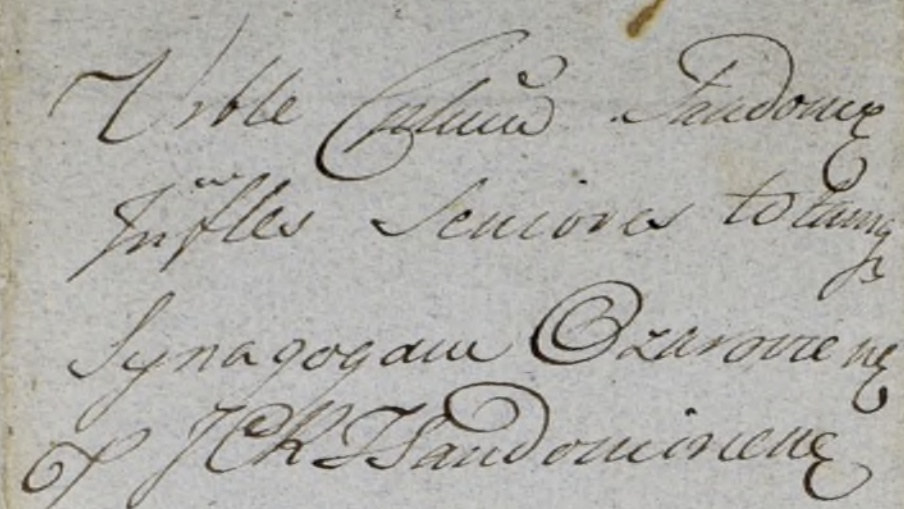 Vrble Cplum Sandomę
Infles Seniores totamq
Synagogam Ozarovieng
X JCK TSandomirieng